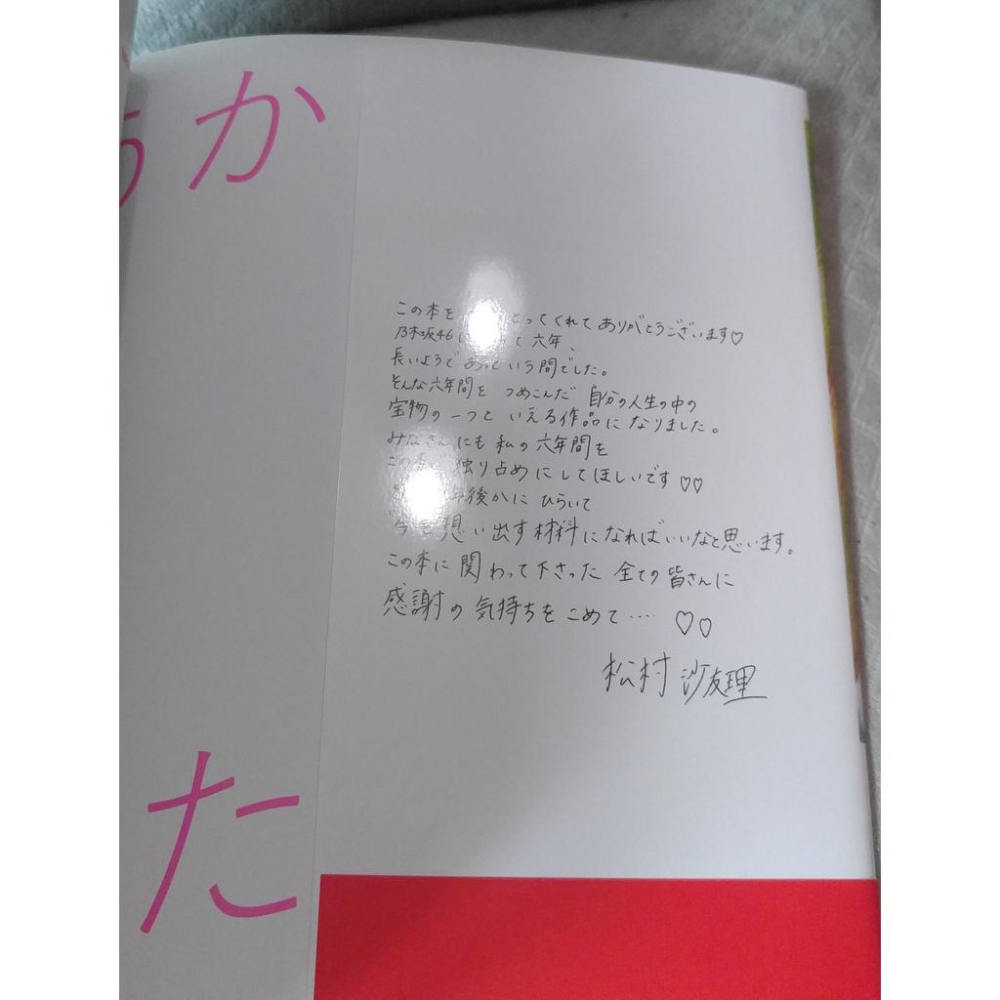 か
た
この本を とってくれて ありがとうございます♡
乃木坂46に て 六年、
長いようで あっという間でした。
そんな六年間を つめこんだ 自分の人生の中の
宝物の一つと いえる作品に なりました。
みなさんにも 私の六年間を
この 独り占めに してほしいです♡♡
年後かに ひらいて
今を 想い出す 材料に なればいいなと思います。
この本に 関わって下さった 全ての 皆さんに
感謝の 気持ちを こめて‥‥ ♡♡
松村 沙友理